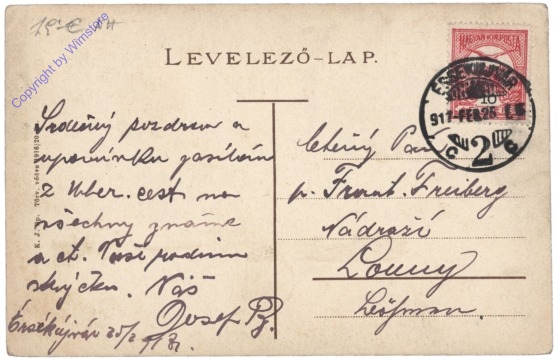 15,-€
Copyright by Wimstore
LEVELEZŐ-LAP.
MAGYAR KIR. POSTA
ÉRSEKUJVÁR
917 FEB 25
2
Srdečný pozdrav a
upomínku zasílám
z Uher. cest na
všechny známé
a ct. Vaši rodinu
strýčku. Váš
Josef
Érsékújvár 25/2
Ctěný Pan
p. Frant. Freiberg
Nádraží
Louny
Böhmen.